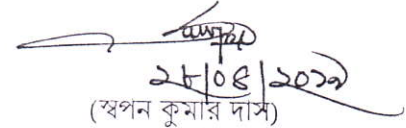 ২৮|০৪|২০১৯
(স্বপন কুমার দাস)